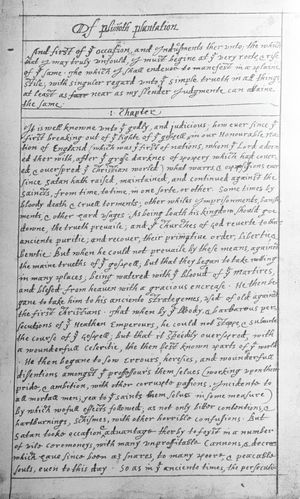 Of plim̃oth plantation
And first of yͤ occasion, and Indusments ther unto; the which
that I may truly unfould, I must begine at yͤ very roote & rise
of yͤ same. The which I shall endevor to manefest in a plaine
stile; with singuler regard unto yͤ simple trueth in all things,
at least as near as my slender Judgmente can attaine
the same.
1. Chapter
It is well knowne unto yͤ godly, and judicious, how ever since yͤ
first breaking out of yͤ lighte of yͤ gospell, in our Honourable na-
tion of England (which was yͤ first of nations, whom yͤ Lord adorn-
ed ther with, affter yͤ grosse darknes of popery which had cover-
ed & overspred yͤ Christian world) what warrs, & oppossions ever
since satan hath raised, maintained, and continued against the
saincts, from time, to time, in one sorte, or other. Some times by
bloody death & cruell torments; other whiles Imprisonments, banish-
ments & other hard usages. As being loath his kingdom should goe
downe, the trueth prevaile; and yͤ Churches of God reverte to their
anciente puritie; and recover, their primative order, libertie &
bewtie. But when he could not prevaile by these means, against
the maine trueths of yͤ gospell, but that they began to take rooting
in many places; being watered with yͤ bloud of yͤ martires,
and blessed from heaven with a gracious encrease. He then be-
gane to take him to his anciente strategemes, used of old against
the first Christians. That when by yͤ bloody, & barbarous per-
secutions of yͤ Heathen Emperours, he could not stoppe, & subuerte
the course of yͤ gospell; but that it speedily overspred, with
a wounderfull celeritie, the then best known parts of yͤ world.
He then begane to sow errours, heresies, and wounderfull
disentions amongst yͤ professours them selves (working upon their
pride, & ambition, with other corrupte passions, Incidente to
all mortall men; yea to yͤ saints them selves in some measure)
By which wofull effects followed; as not only bitter contentions, &
hartburnings, schismes, with other horrible confusions. But
satan tooke occasion & advantage therby to foyst in a number
of vile ceremoneys, with many unprofitable Cannons, & decrees
which have since been as snares to many poore, & peaceable
souls, even to this day. So as in yͤ anciente times, the persecutio